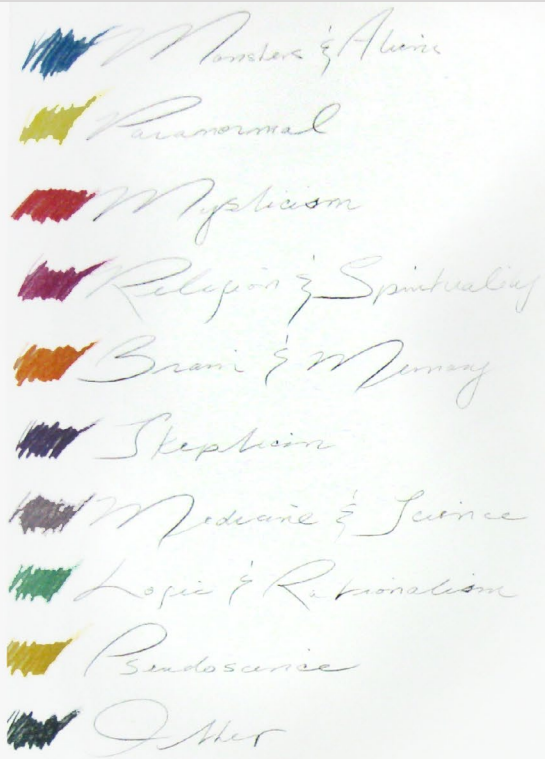 Monsters & Aliens
Paranormal
Mysticism
Religion & Spirituality
Brain & Memory
Skepticism
Medicine & Science
Logic & Rationalism
Pseudoscience
Other